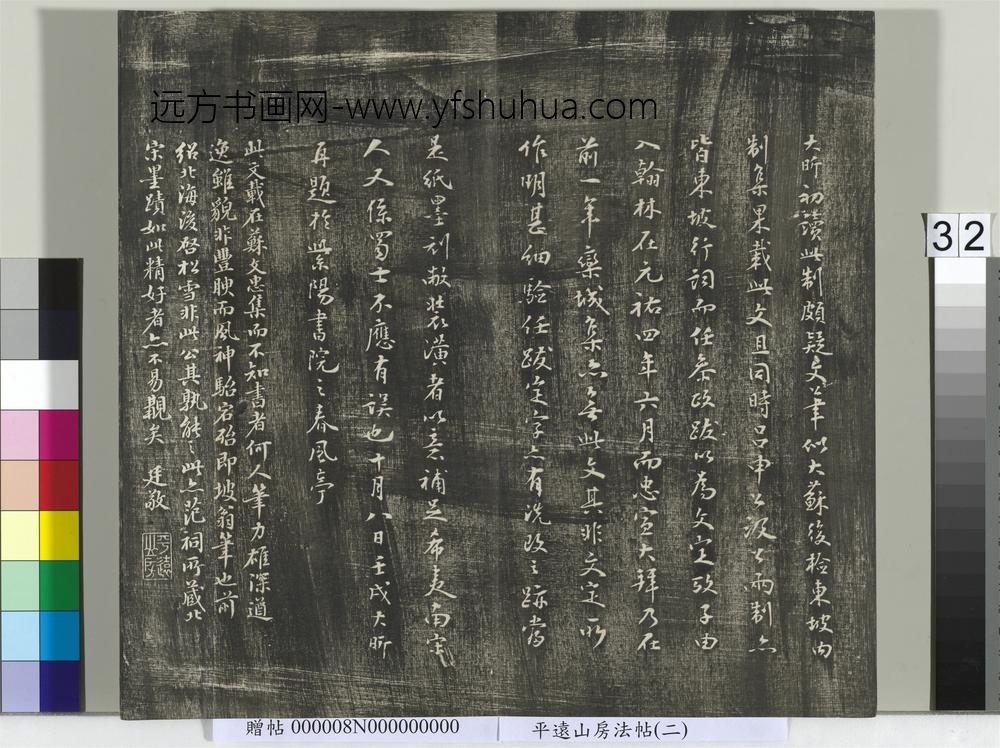 远方书画网-www.yfshuhua.com
大昕初讀此制頗疑文筆似大蘇後檢東坡內
制集果載此文且同時呂申公汲公兩制亦
皆東坡行詞而任參政跋以爲文定攷子由
入翰林在元祐四年六月而忠宣大拜乃在
前一年欒城集亦無此文其非文定所
作明甚細驗任跋定字亦有洗改之跡當
是紙墨刓敝裝潢者以意補足希夷南宋
人又係蜀士不應有誤也十月八日壬戌大昕
再題於紫陽書院之春風亭
此文載在蘇文忠集而不知書者何人筆力雄深遒
逸雖貌非豐腴而風神駘宕殆即坡翁筆也前
紹北海後啓松雪非此公其孰能之此亦范祠所藏北
宋墨蹟如此精好者亦不易覯矣 廷敬
平遠山房
32
贈帖 000008N000000000
平遠山房法帖(二)